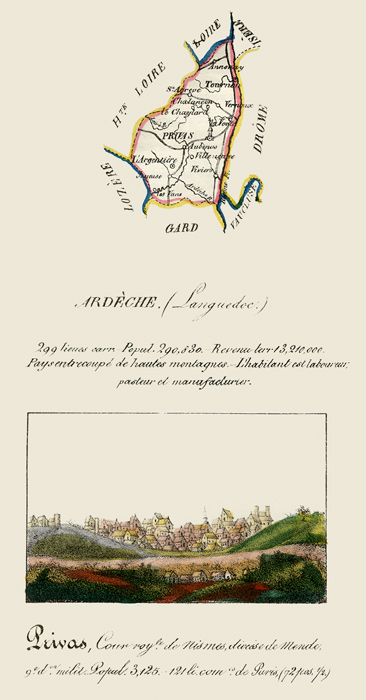 LOIRE
ISÈRE
Hte LOIRE
Annonay
Tournon
St Agrève
Chalançon
Vernoux
le Chaylard
DRÔME
la Voulte
PRIVAS
Aubenas
Villeneuve
L'Argentière
Viviers
LOZÈRE
Joyeuse
les Vans
Ardèche
VAUCLUSE
GARD
ARDÈCHE. (Languedoc.)
299 lieues carr. Popul. 290,830. Revenu terr 13,210,000.
Pays entrecoupé de hautes montagnes. L'habitant est laboureur,
pasteur et manufacturier.
Privas, Cour royle de Nismes, diocèse de Mende,
9e don milit. Popul. 3,125. - 121 li. com es de Paris, (72 pos. ½)